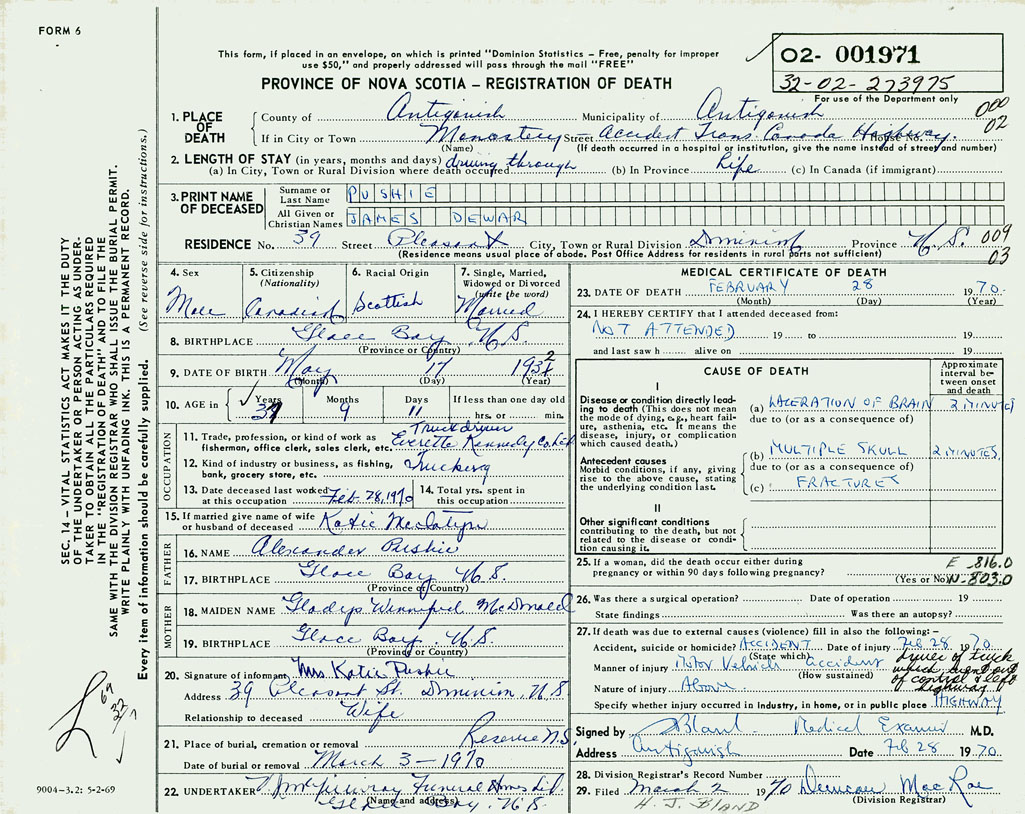 FORM 6
This form, if placed in an envelope, on which is printed "Dominion Statistics – Free, penalty for improper
use $50," and properly addressed will pass through the mail "FREE"
O2- 001971
32-02-273975
For use of the Department only
PROVINCE OF NOVA SCOTIA – REGISTRATION OF DEATH
000
02
1. PLACE OF DEATH
County of Antigonish Municipality of Antigonish
If in City or Town Monastery Street Accident Trans Canada Highway.
(Name) (If death occurred in a hospital or institution, give the name instead of street and number)
2. LENGTH OF STAY (in years, months and days) driving through
(a) In City, Town or Rural Division where death occurred (b) In Province Life (c) In Canada (if immigrant)
3. PRINT NAME OF DECEASED
Surname or Last Name PUSHIE
All Given or Christian Names JAMES DEWAR
RESIDENCE No. 39 Street Pleasant City, Town or Rural Division Dominion Province N.S. 009
03
(Residence means usual place of abode. Post Office Address for residents in rural parts not sufficient)
4. Sex
Male
5. Citizenship
(Nationality)
Canadian
6. Racial Origin
Scottish
7. Single, Married,
Widowed or Divorced
(write the word)
Married
8. BIRTHPLACE Glace Bay N.S.
(Province or Country)
9. DATE OF BIRTH May 17 1932
(Month) (Day) (Year)
10. AGE in Years Months Days If less than one day old
37 9 11 hrs. or min.
OCCUPATION
Truckdriver
11. Trade, profession, or kind of work as
fisherman, office clerk, sales clerk, etc. Everette Kennedy Co. Ltd
12. Kind of industry or business, as fishing,
bank, grocery store, etc. Trucking
13. Date deceased last worked
at this occupation Feb 28, 1970
14. Total yrs. spent in
this occupation
15. If married give name of wife
or husband of deceased Katie McIntyre
FATHER
16. NAME Alexander Pushie
17. BIRTHPLACE Glace Bay N.S.
(Province or Country)
MOTHER
18. MAIDEN NAME Gladys Winnifred McDonald
19. BIRTHPLACE Glace Bay N.S.
(Province or Country)
20. Signature of informant Mrs Katie Pushie
Address 39 Pleasant St. Dominion N.S
Relationship to deceased Wife
21. Place of burial, cremation or removal Reserve N.S
Date of burial or removal March 3 – 1970
22. UNDERTAKER Funeral Home Ltd.
(Name and address)
Glace Bay. N.S
MEDICAL CERTIFICATE OF DEATH
23. DATE OF DEATH FEBRUARY 28 1970.
(Month) (Day) (Year)
24. I HEREBY CERTIFY that I attended deceased from:
NOT ATTENDED 19 to 19
and last saw h alive on 19
CAUSE OF DEATH
Approximate
interval be-
tween onset
and death
I
Disease or condition directly lead-
ing to death (This does not mean
the mode of dying, e.g., heart fail-
ure, asthenia, etc. It means the
disease, injury, or complication
which caused death.)
(a) LACERATION OF BRAIN 2 MINUTES
due to (or as a consequence of)
Antecedent causes
Morbid conditions, if any, giving
rise to the above cause, stating
the underlying condition last.
(b) MULTIPLE SKULL 2 MINUTES
due to (or as a consequence of)
(c) FRACTURES
II
Other significant conditions
contributing to the death, but not
related to the disease or condi-
tion causing it.
25. If a woman, did the death occur either during
pregnancy or within 90 days following pregnancy?
(Yes or No)
E 816.0
N-803.0
26. Was there a surgical operation? Date of operation 19
State findings Was there an autopsy?
27. If death was due to external causes (violence) fill in also the following: –
Accident, suicide or homicide? ACCIDENT Date of injury Feb 28 1970
(State which)
Manner of injury Motor Vehicle accident
(How sustained)
driver of truck
which went out
of control & left
highway
Nature of injury Above
Specify whether injury occurred in industry, in home, or in public place HIGHWAY
Signed by Bland Medical Examiner M.D.
Address Antigonish Date Feb 28 1970.
28. Division Registrar's Record Number
29. Filed March 2 1970 Duncan MacRae
(Division Registrar)
H J. BLAND
SEC. 14 – VITAL STATISTICS ACT MAKES IT THE DUTY
OF THE UNDERTAKER OR PERSON ACTING AS UNDER-
TAKER TO OBTAIN ALL THE PARTICULARS REQUIRED
IN THE "REGISTRATION OF DEATH" AND TO FILE THE
SAME WITH THE DIVISION REGISTRAR WHO SHALL ISSUE THE BURIAL PERMIT.
WRITE PLAINLY WITH UNFADING INK. THIS IS A PERMANENT RECORD.
Every item of information should be carefully supplied. (See reverse side for instructions.)
69
9004–3.2: 5-2-69